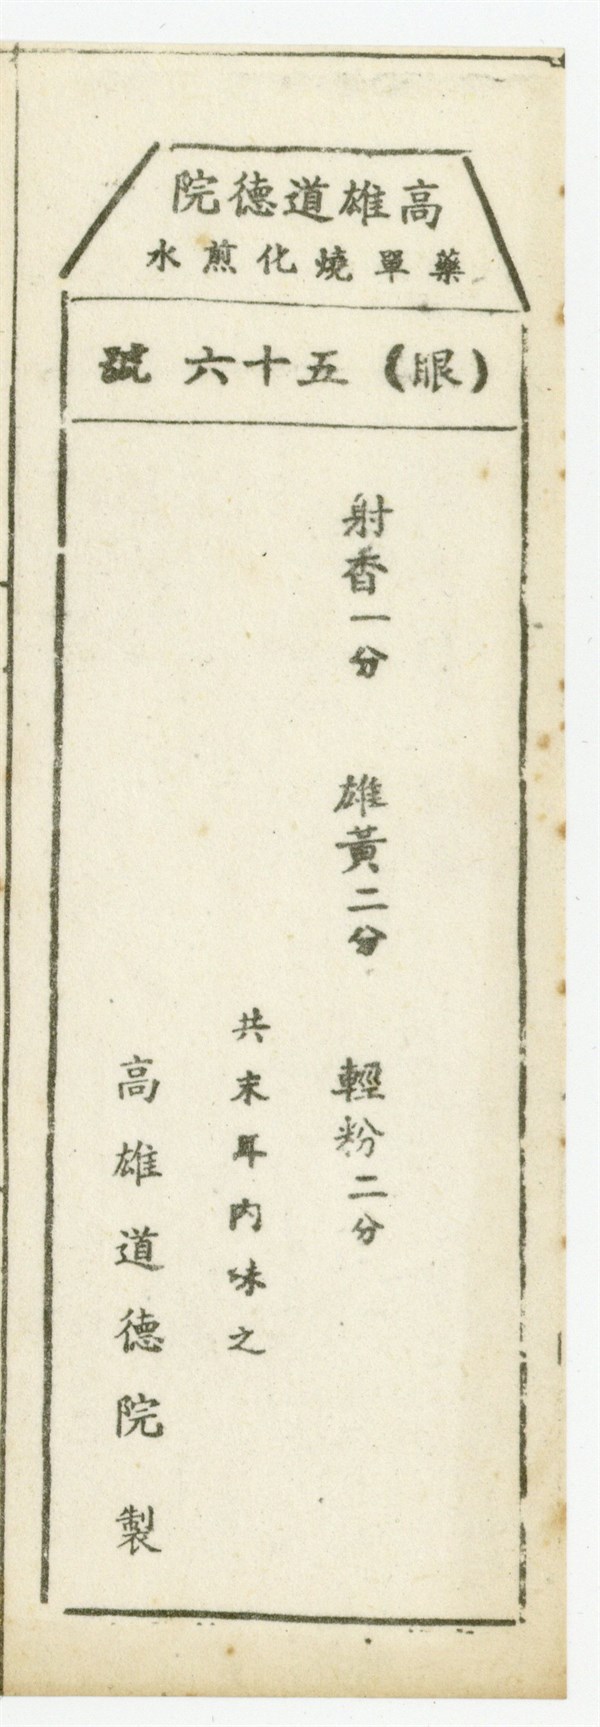 高雄道德院
藥單燒化煎水
(眼)五十六號
射香一分　雄黃二分　輕粉二分
共末耳內味之
高雄道德院製